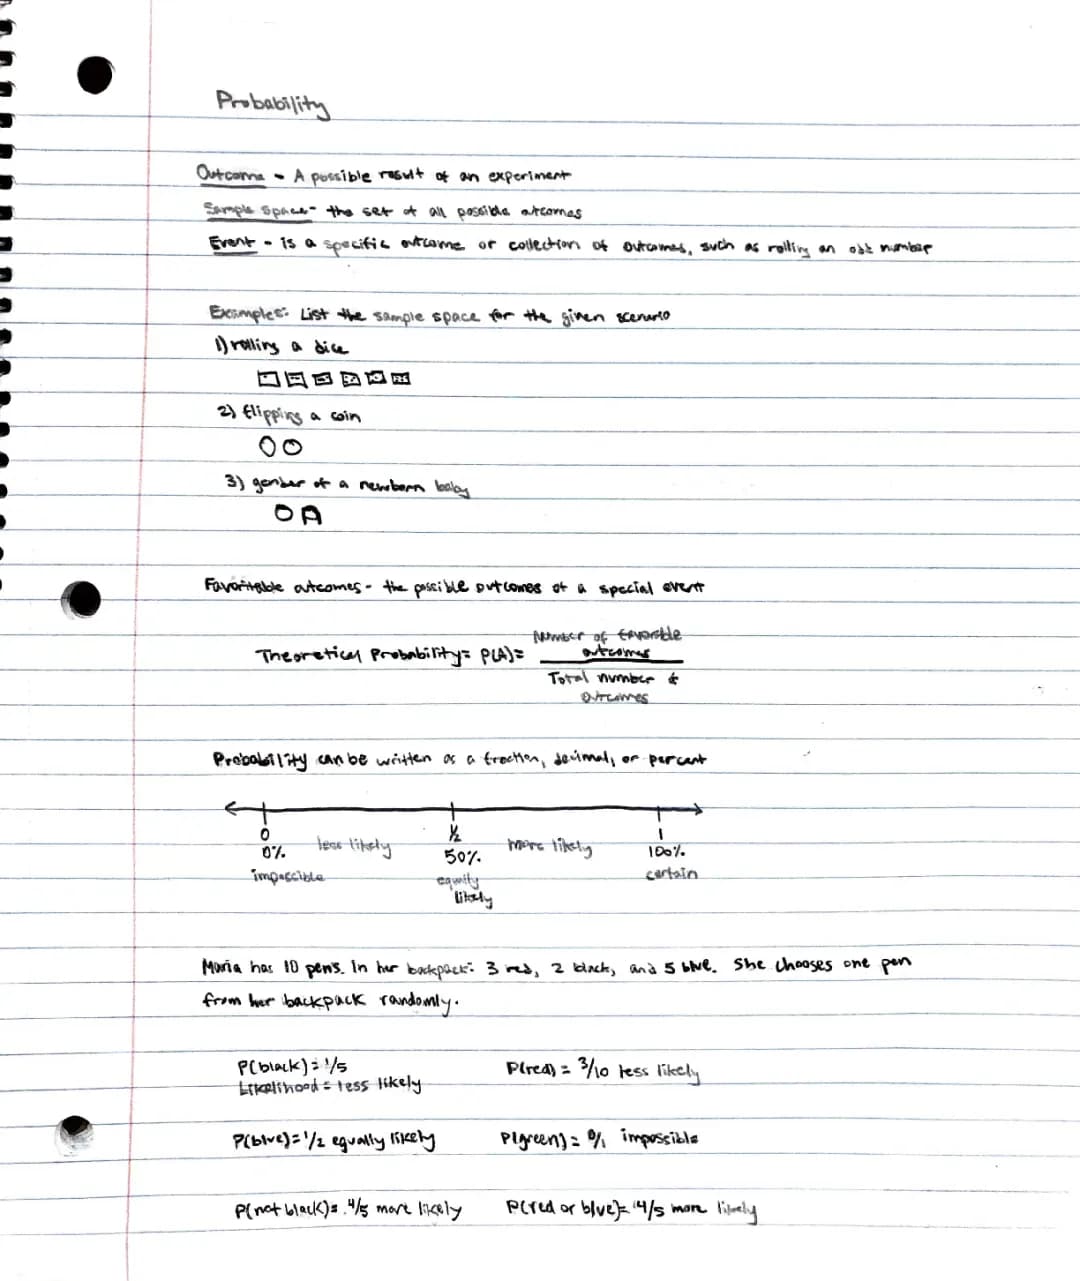 Probability
Outcome - A possible result of an experiment
Sample space - the set of all possible outcomes
Event - is a specific outcome or collection of outcomes, such as rolling an odd number
Examples: List the sample space for the given scenario
1) rolling a dice
2) flipping a coin
3) gender of a newborn baby
Favoritable outcomes - the possible outcomes of a special event
Theoretical Probability = P(A) = Number of favorable outcomes
Total number of
outcomes
Probability can be written as a fraction, decimal, or percent
0 1/2 1
0% less likely 50% more likely 100%
impossible equally certain
likely
Maria has 10 pens. In her backpack: 3 red, 2 black, and 5 blue. She chooses one pen
from her backpack randomly.
P(black) = 1/5 P(red) = 3/10 less likely
Likelihood = less likely
P(blue) = 1/2 equally likely P(green) = 0/1 impossible
P(not black) = 4/5 more likely P(red or blue) = 4/5 more likely